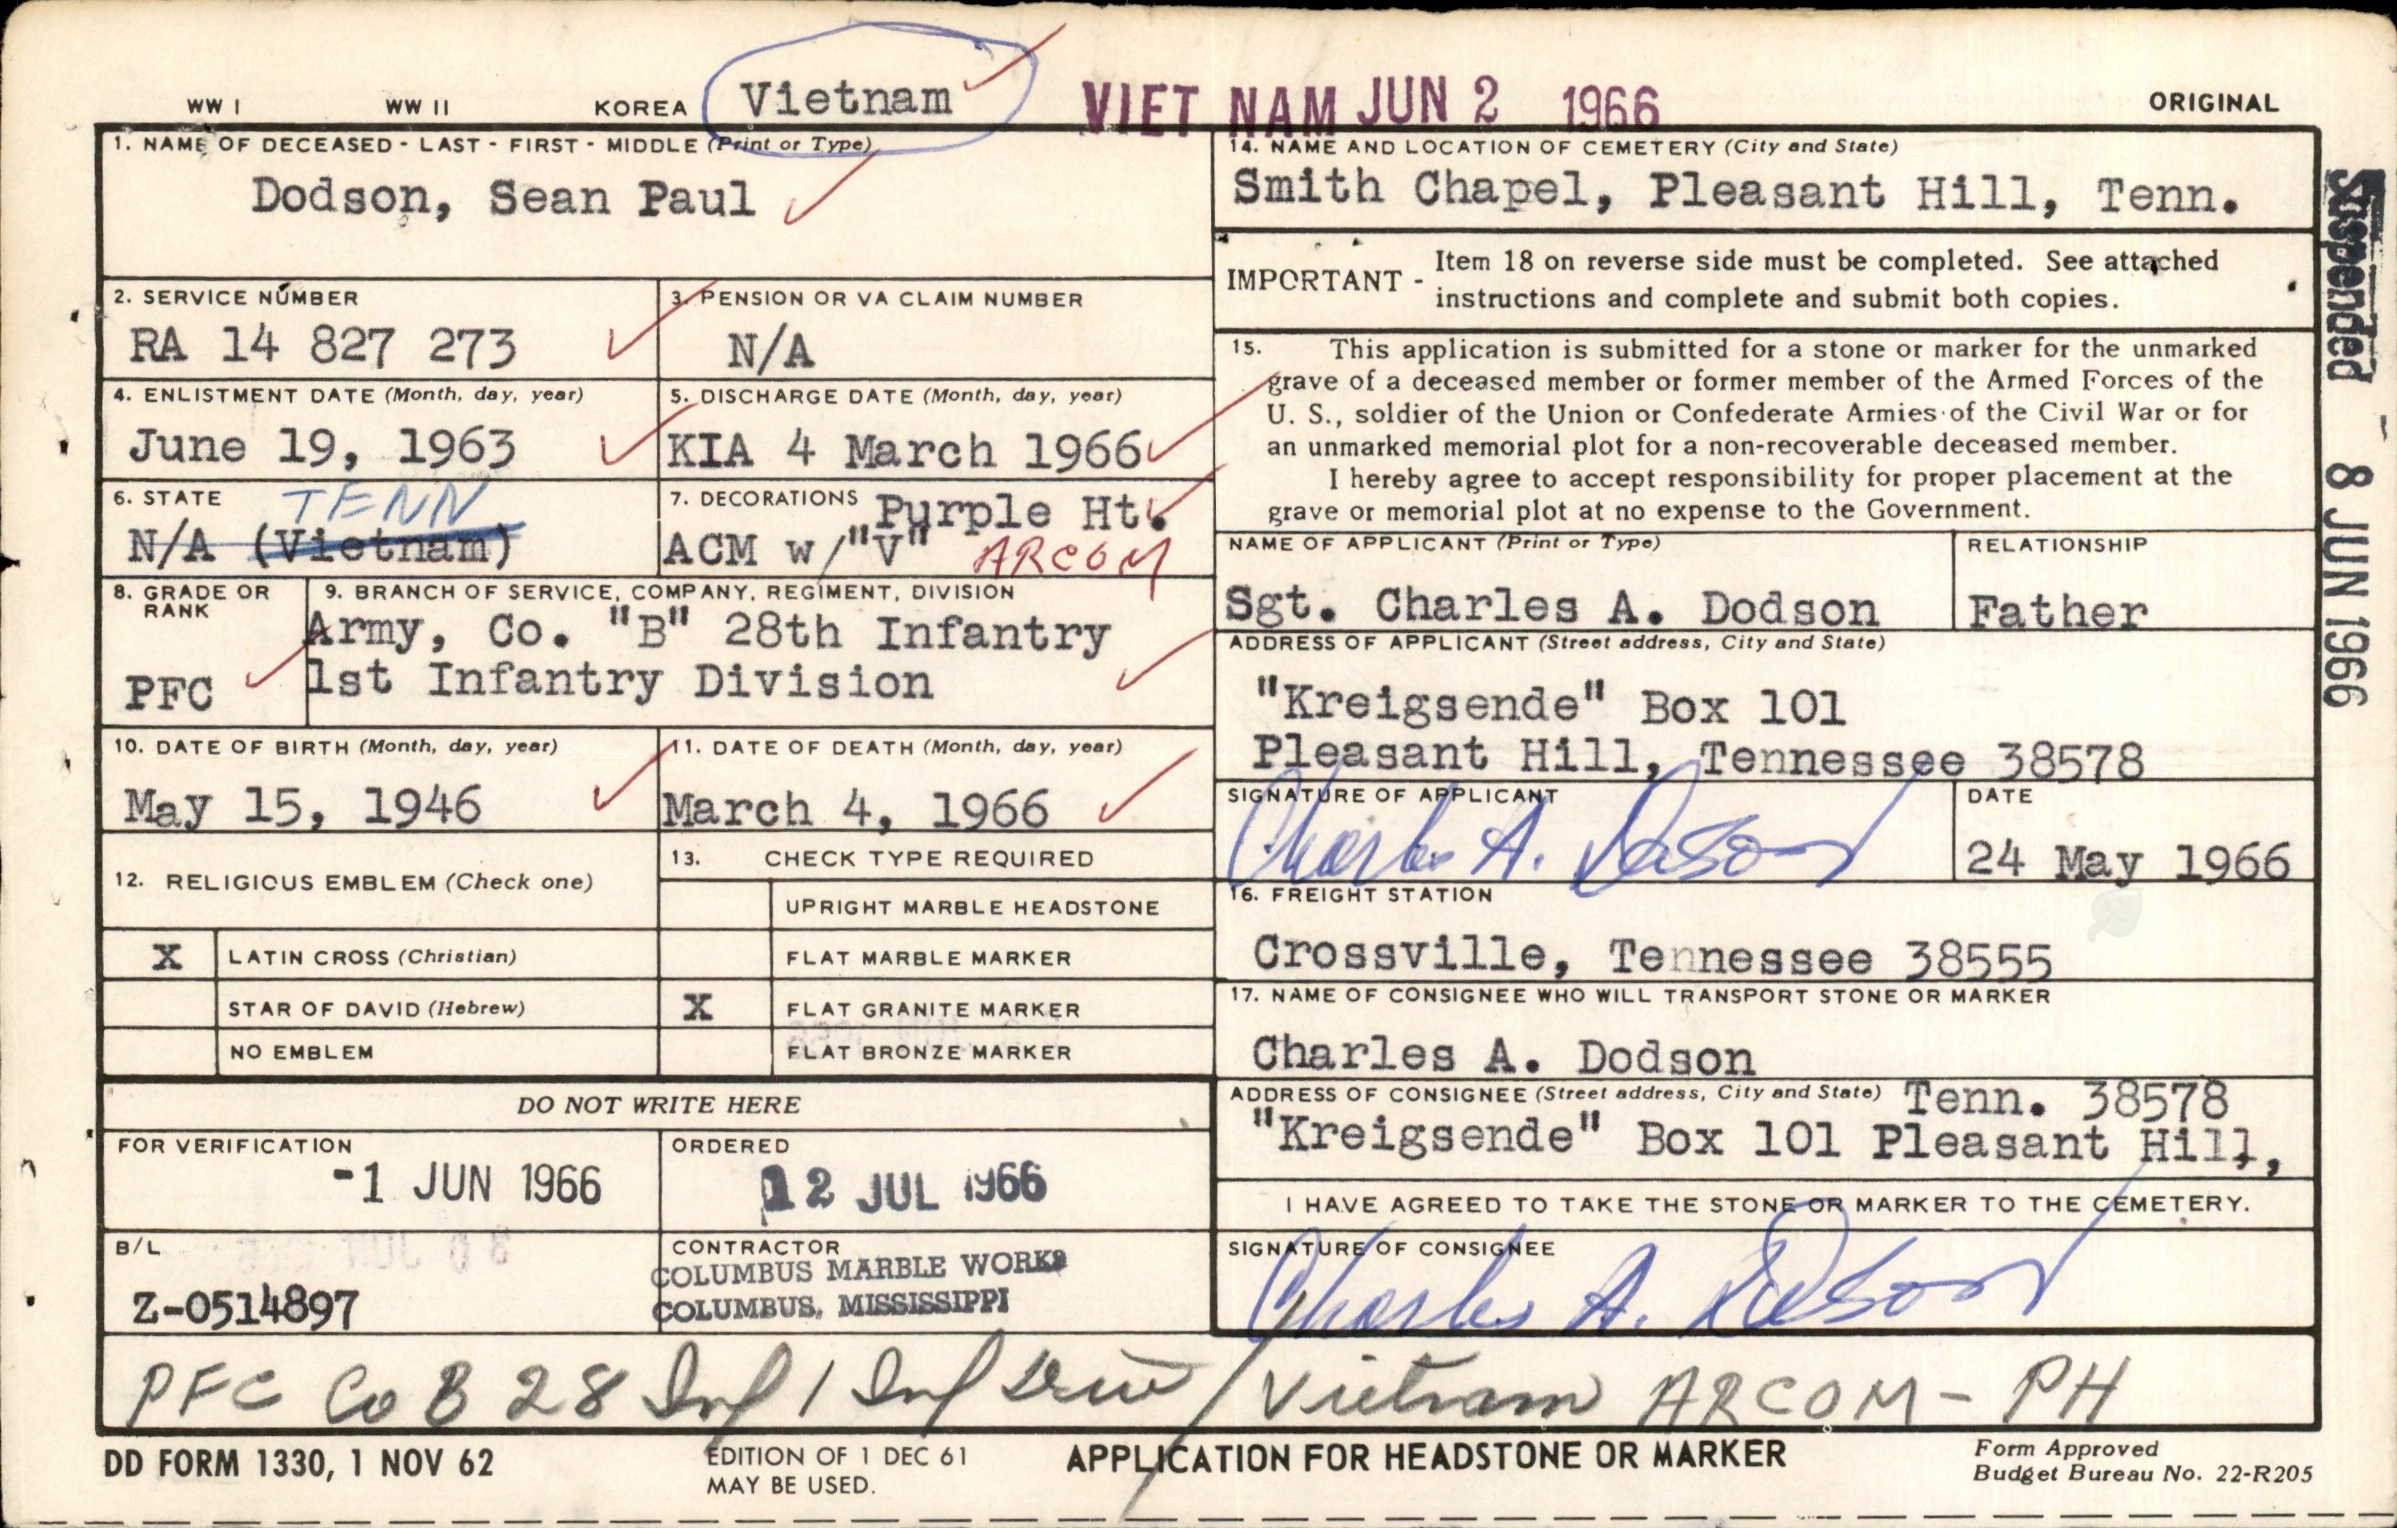 WW I WW II KOREA Vietnam VIET NAM JUN 2 1966 ORIGINAL
1. NAME OF DECEASED - LAST - FIRST - MIDDLE (Print or Type)
Dodson, Sean Paul
2. SERVICE NUMBER
RA 14 827 273
3. PENSION OR VA CLAIM NUMBER
N/A
4. ENLISTMENT DATE (Month, day, year)
June 19, 1963
5. DISCHARGE DATE (Month, day, year)
KIA 4 March 1966
6. STATE
TENN
N/A (Vietnam)
7. DECORATIONS Purple Ht.
ACM w/"V" ARCOM
8. GRADE OR
RANK
PFC
9. BRANCH OF SERVICE, COMPANY, REGIMENT, DIVISION
Army, Co. "B" 28th Infantry
1st Infantry Division
10. DATE OF BIRTH (Month, day, year)
May 15, 1946
11. DATE OF DEATH (Month, day, year)
March 4, 1966
12. RELIGIOUS EMBLEM (Check one)
X LATIN CROSS (Christian)
STAR OF DAVID (Hebrew)
NO EMBLEM
13. CHECK TYPE REQUIRED
UPRIGHT MARBLE HEADSTONE
FLAT MARBLE MARKER
X FLAT GRANITE MARKER
FLAT BRONZE MARKER
DO NOT WRITE HERE
FOR VERIFICATION
-1 JUN 1966
ORDERED
12 JUL 1966
B/L
Z-0514897
CONTRACTOR
COLUMBUS MARBLE WORKS
COLUMBUS, MISSISSIPPI
14. NAME AND LOCATION OF CEMETERY (City and State)
Smith Chapel, Pleasant Hill, Tenn.
IMPORTANT - Item 18 on reverse side must be completed. See attached
instructions and complete and submit both copies.
15. This application is submitted for a stone or marker for the unmarked
grave of a deceased member or former member of the Armed Forces of the
U. S., soldier of the Union or Confederate Armies of the Civil War or for
an unmarked memorial plot for a non-recoverable deceased member.
I hereby agree to accept responsibility for proper placement at the
grave or memorial plot at no expense to the Government.
NAME OF APPLICANT (Print or Type)
Sgt. Charles A. Dodson
RELATIONSHIP
Father
ADDRESS OF APPLICANT (Street address, City and State)
"Kreigsende" Box 101
Pleasant Hill, Tennessee 38578
SIGNATURE OF APPLICANT
Charles A. Dodson
DATE
24 May 1966
16. FREIGHT STATION
Crossville, Tennessee 38555
17. NAME OF CONSIGNEE WHO WILL TRANSPORT STONE OR MARKER
Charles A. Dodson
ADDRESS OF CONSIGNEE (Street address, City and State) Tenn. 38578
"Kreigsende" Box 101 Pleasant Hill,
I HAVE AGREED TO TAKE THE STONE OR MARKER TO THE CEMETERY.
SIGNATURE OF CONSIGNEE
Charles A. Dodson
Suspended - 8 JUN 1966
PFC Co B 28 Inf 1 Inf Div / Vietnam ARCOM - PH
DD FORM 1330, 1 NOV 62
EDITION OF 1 DEC 61
MAY BE USED.
APPLICATION FOR HEADSTONE OR MARKER
Form Approved
Budget Bureau No. 22-R205